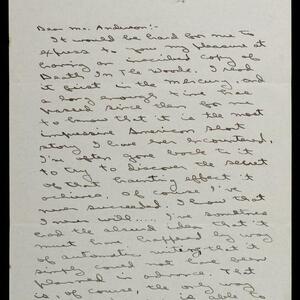 Dear Mr. Anderson:-
It would be hard for me to
express to you my pleasure at
having an inscribed copy of
Death In The Woods. I read
it first in the Mercury, and
a long enough time has
passed since then for me
to know that it is the most
impressive American short
story I have ever encountered.
I've often gone back to it
to try to discover the secret
of that haunting effect it
achieves. Of course I've
never succeeded. I know that
I never will..... I've sometimes
had the absurd idea that it
must have happened by way
of automatic writing, that it
simply could not have been
planned in advance. That
is, of course, the only way
is able to